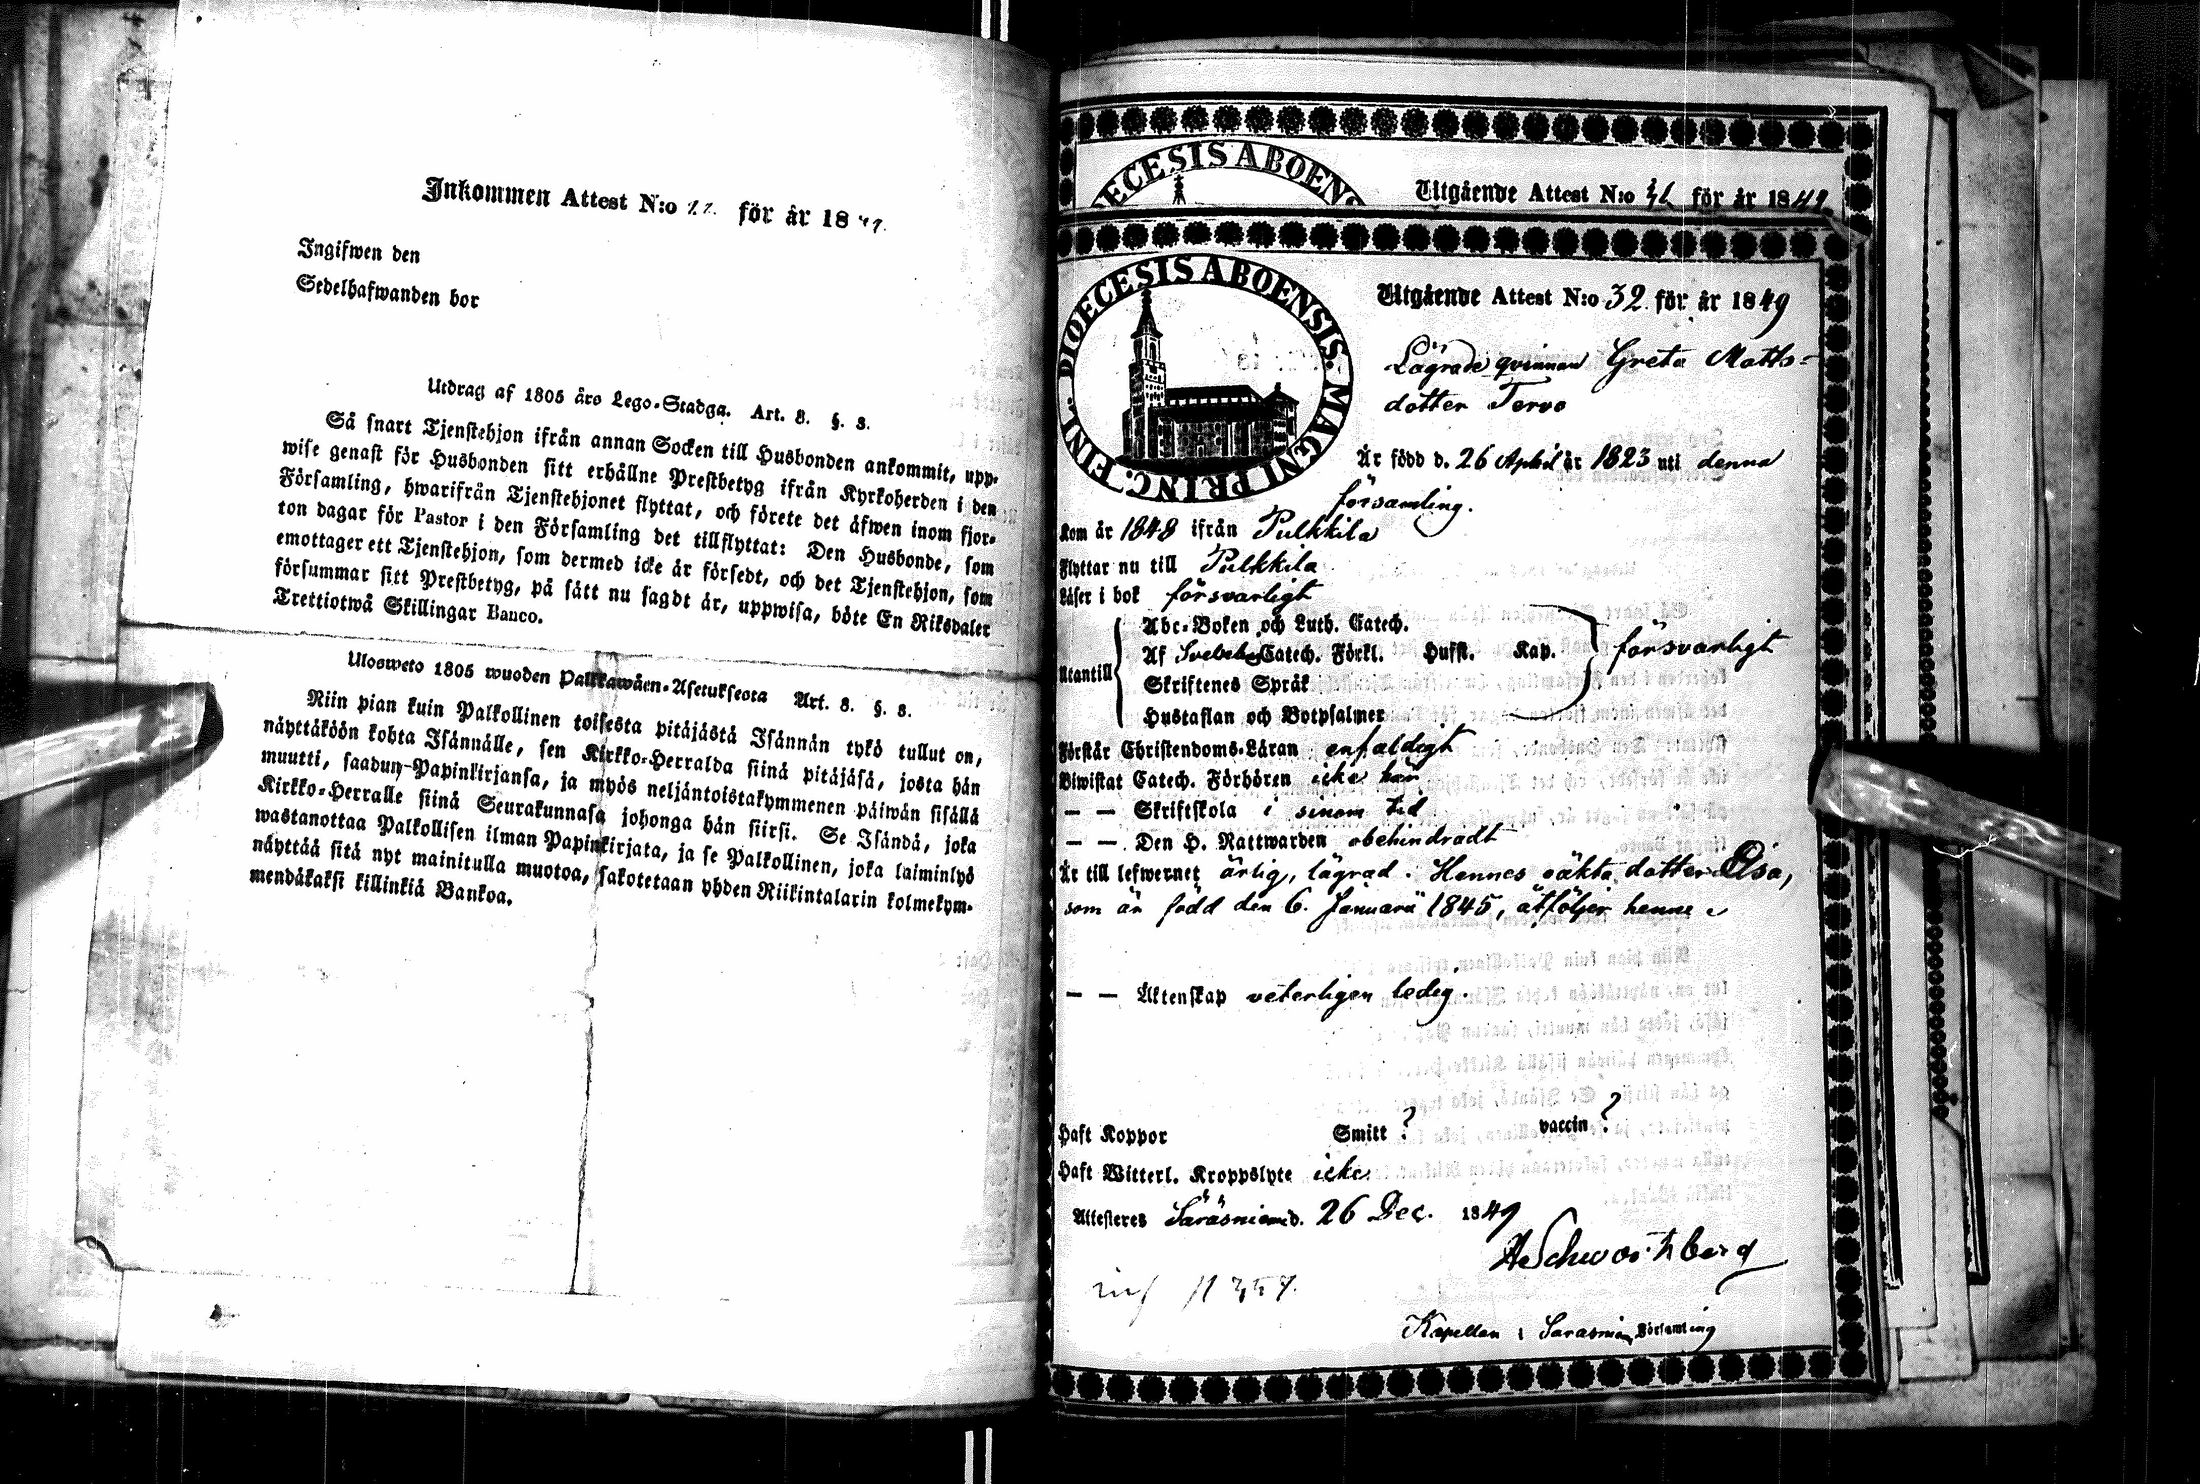 Inkommen Attest N:o för år 18
Ingifwen den
Sedelhafwanden bor
Utdrag af 1805 års Lego-Stadga. Art. 8. §. 8.
Så snart Tjenstehjon ifrån annan Socken till Husbonden ankommit, upp-
wise genast för Husbonden sitt erhållne Prestbetyg ifrån Kyrkoherden i den
Församling, hwarifrån Tjenstehjonet flyttat, och förete det äfwen inom fjor-
ton dagar för Pastor i den Församling det tillflyttat: Den Husbonde, som
emottager ett Tjenstehjon, som dermed icke är försedt, och det Tjenstehjon, som
försummar sitt Prestbetyg, på sätt nu sagdt är, uppwisa, böte En Riksdaler
Trettiotwå Skillingar Banco.
Ulosweto 1805 wuoden Palkkawäen-Asetuksesta Art. 8. §. 8.
Niin pian kuin Palkollinen toisesta pitäjästä Isännän tykö tullut on,
näyttäköön kohta Isännälle, sen Kirkko-Herralda siinä pitäjäsä, josta hän
muutti, saadun Papinkirjansa, ja myös neljäntoistakymmenen päiwän sisällä
Kirkko-Herralle siinä Seurakunnasa johonga hän siirsi. Se Isändä, joka
wastanottaa Palkollisen ilman Papinkirjata, ja se Palkollinen, joka laiminlyö
näyttää sitä nyt mainitulla muotoa, sakotetaan yhden Riikintalarin kolmekym-
mendäkaksi killinkiä Bankoa.
DIOECESIS ABOENS
Utgående Attest N:o för år 1849.
DIOECESIS ABOENSIS. MAGNI PRINC. FINL.
Utgående Attest N:o 32 för år 1849
Lägrade qvinnan Greta Matts-
dotter Tervo
Är född d. 26 April år 1823 uti denna
församling.
Kom år 1848 ifrån Pulkkila
Flyttar nu till Pulkkila
Läser i bok försvarligt
Abc-Boken och Luth. Catech.
Af Svebelii Catech. Förkl. Hufst. Kap. försvarligt
Utantill
Skriftenes Språk
Hustaflan och Botpsalmer
Förstår Christendoms-Läran enfaldigt
Biwistat Catech. Förhören icke här
— — Skriftskola i sinom tid
— — Den H. Nattwarden obehindradt
Är till lefwernet ärlig, lägrad. Hennes oäkta dotter Elsa,
som är född den 6. Januarii 1845, åtföljer henne
— — Äktenskap veterligen ledig.
Haft Koppor Smitt ? vaccin ?
Haft Witterl. Kroppslyte icke
Attesteres Säräsniemi d. 26 Dec. 1849
A Schwartzberg
Kapellan i Säräsniemi Församling